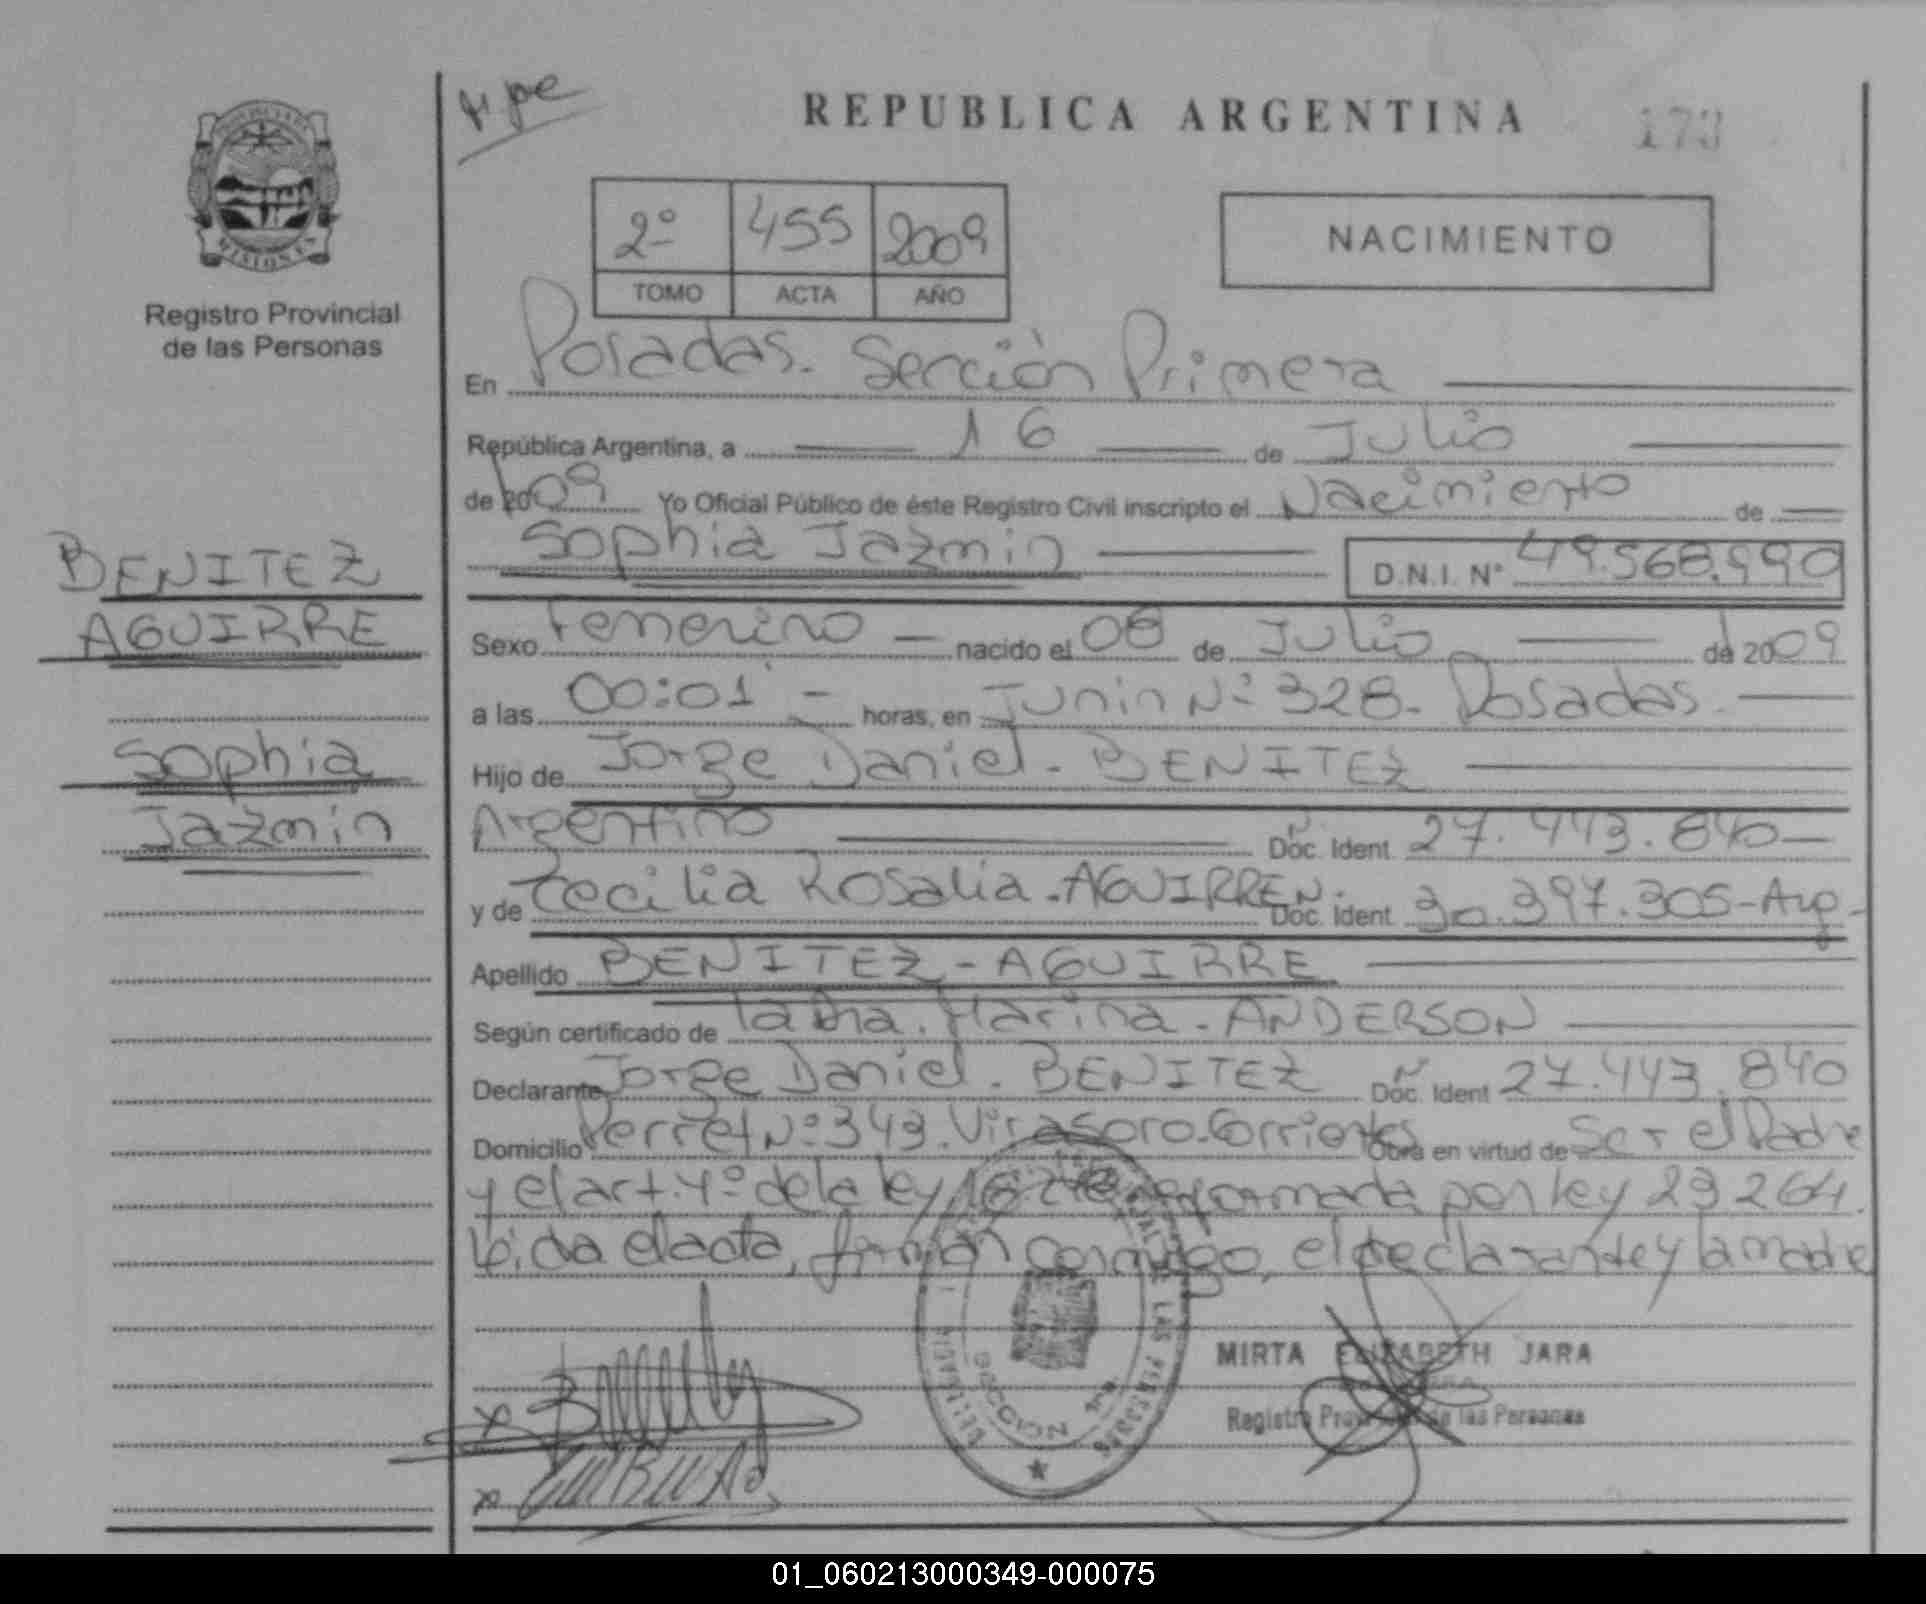 REPUBLICA ARGENTINA
173
PROVINCIA DE
MISIONES
Registro Provincial
de las Personas
2º 455 2009
TOMO ACTA AÑO
NACIMIENTO
En Posadas. Sección Primera
República Argentina, a 16 de Julio
de 2009 Yo Oficial Público de éste Registro Civil inscripto el Nacimiento de
Sophia Jazmin D.N.I. Nº 49.568.990
BENITEZ
AGUIRRE
Sophia
Jazmin
Sexo Femenino - nacido el 08 de Julio de 2009
a las 00:01 - horas, en Junin Nº 328. Posadas.
Hijo de Jorge Daniel. BENITEZ
Argentino Doc. Ident. 27.443.840-
y de Cecilia Rosalia. AGUIRRE N. Doc. Ident. 30.397.305-Arg-
Apellido BENITEZ-AGUIRRE
Según certificado de Marina. ANDERSON
Declarante Jorge Daniel. BENITEZ Doc. Ident 27.443.840
Domicilio Perret Nº 343. Virasoro. Corrientes Obra en virtud de Ser el Padre
y el art. 4º de la ley reformada por ley 23264.
Leida el acta, firman conmigo, el declarante y la madre
MIRTA ELIZABETH JARA
Registro Provincial de las Personas
SECCION
LAS PERSONAS
x
x
01_060213000349-000075